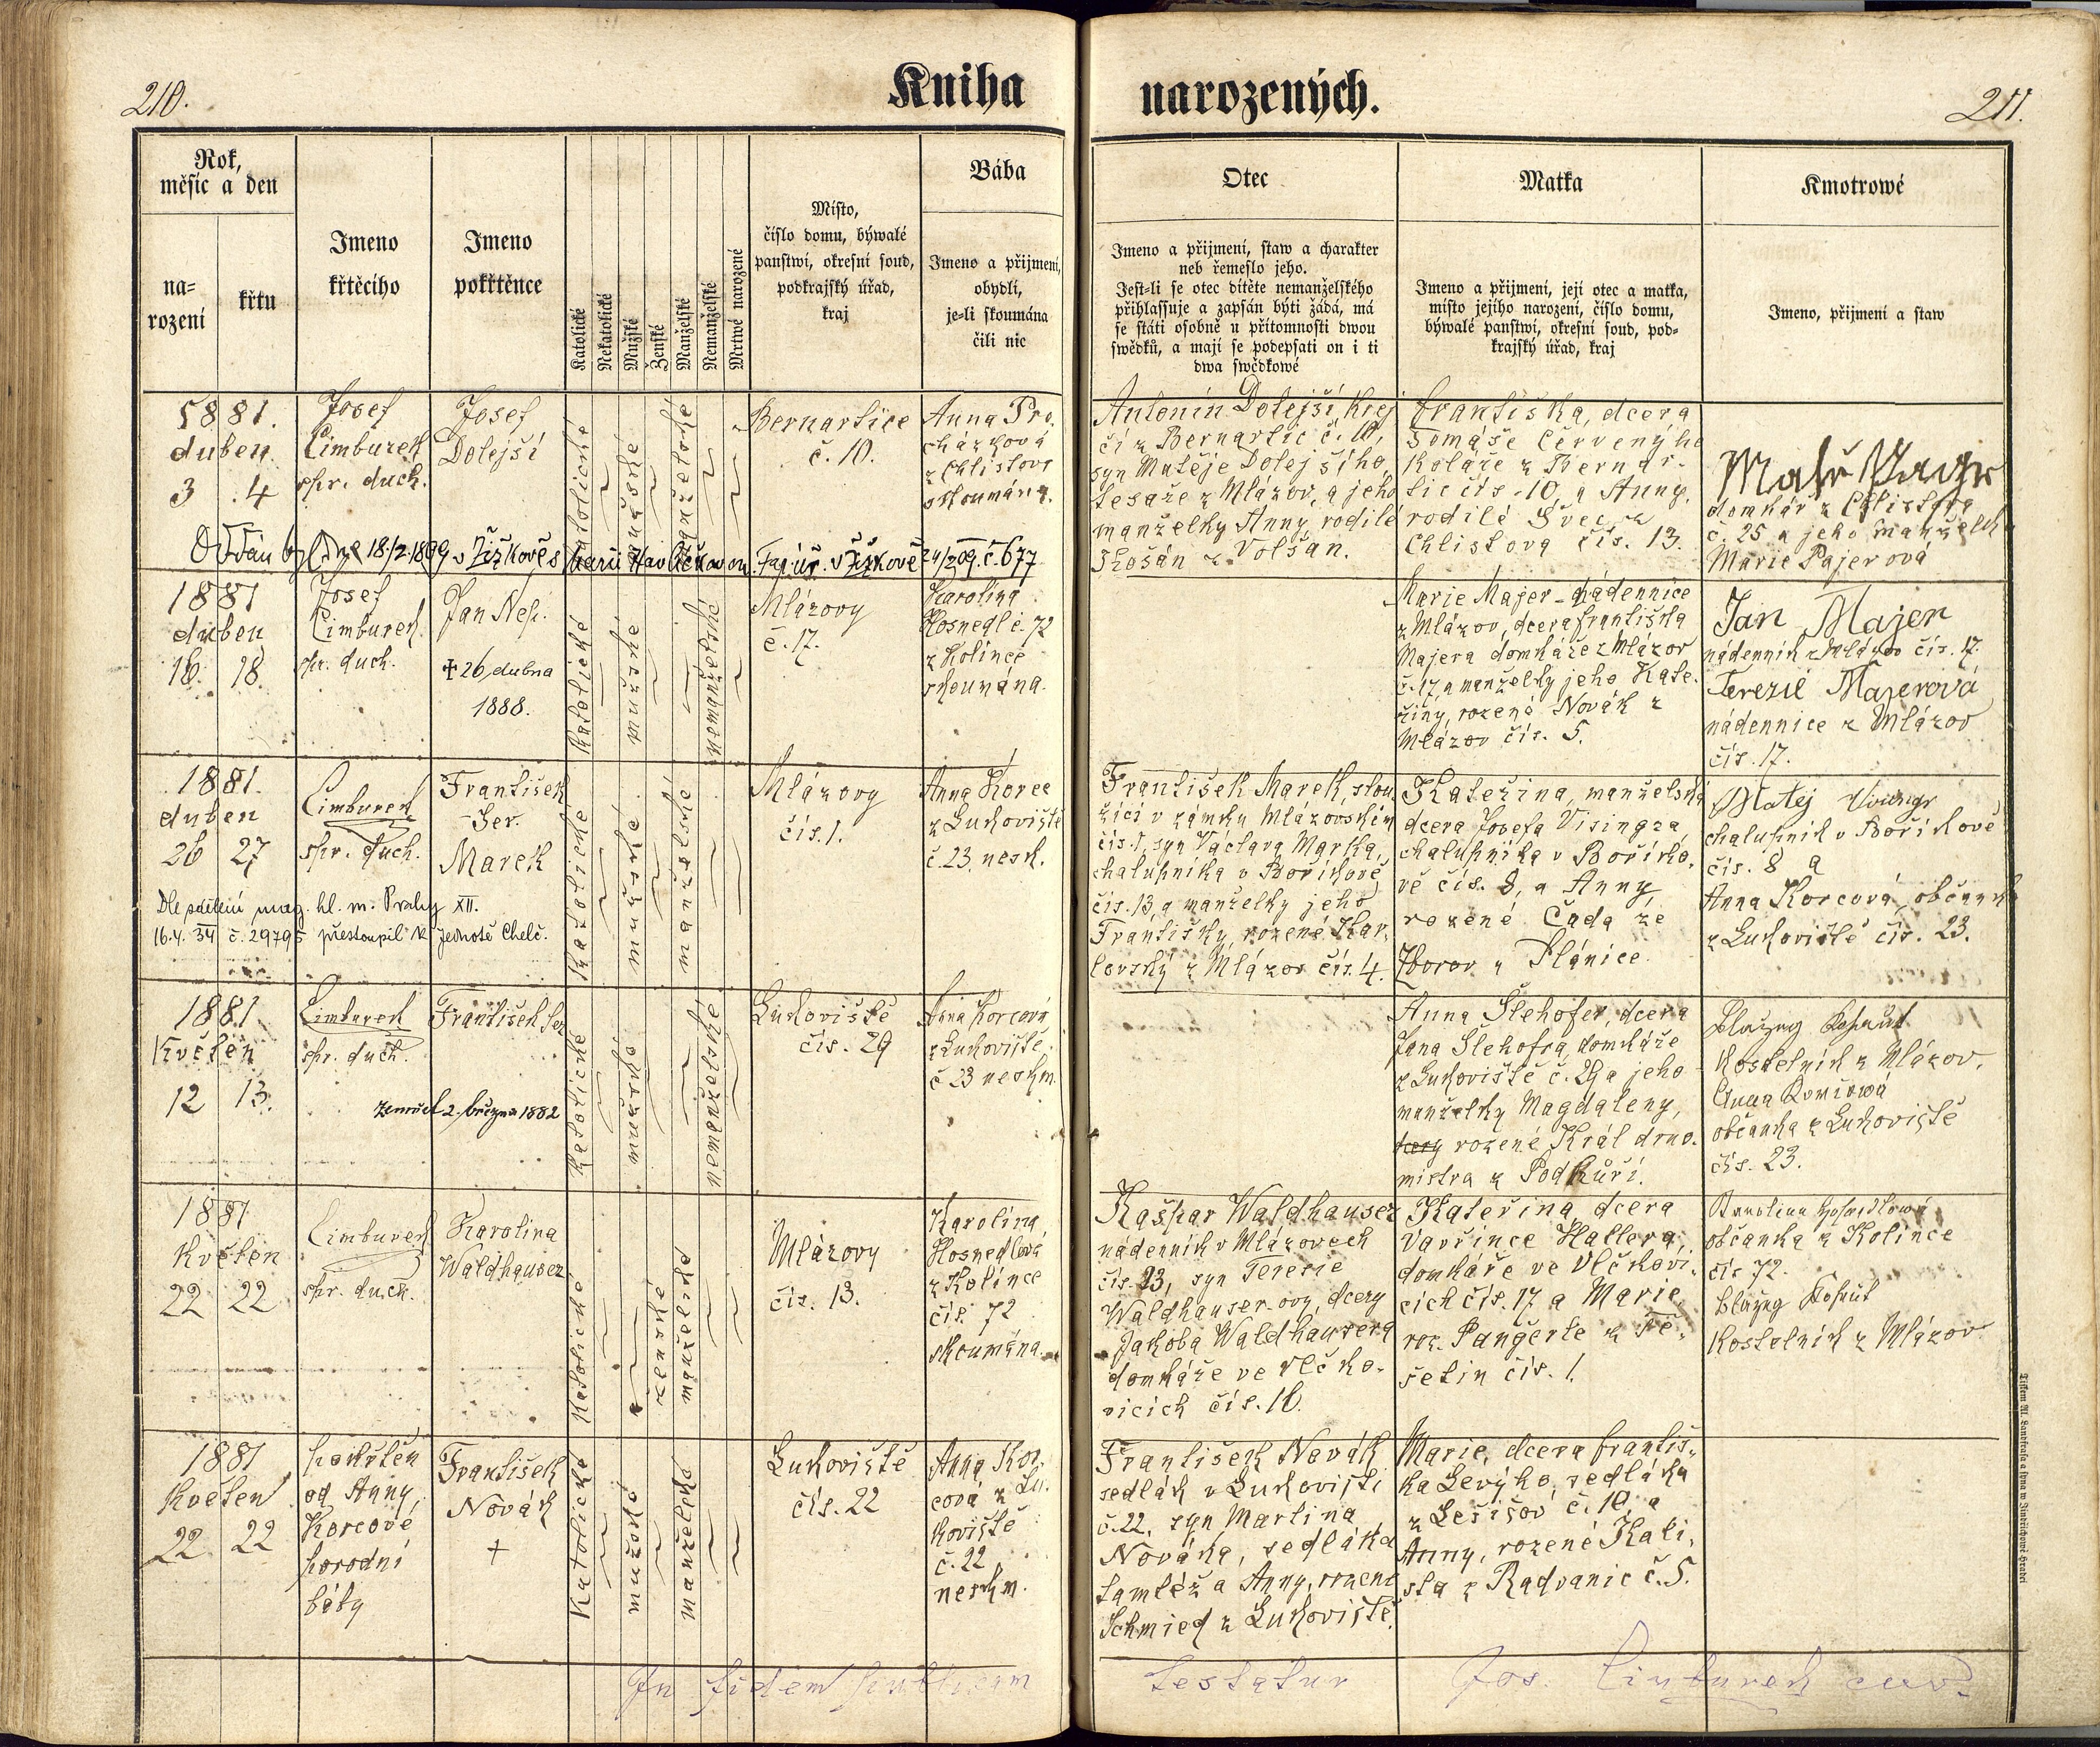 210.
Kniha
narozených.
211.
Rok,
měsíc a den
na=
rození
křtu
Jmeno
křtěcího
Jmeno
pokřtěnce
Katolické
Nekatolické
Mužské
Ženské
Manželské
Nemanželské
Mrtwé narozené
Místo,
číslo domu, býwalé
panstwí, okresní soud,
podkrajský úřad,
kraj
Bába
Jmeno a přijmení,
obydlí,
je=li skoumána
čili nic
Otec
Jmeno a přijmení, staw a charakter
neb řemeslo jeho.
Jest=li se otec dítěte nemanželského
přihlassuje a zapsán býti žádá, má
se státi osobně u přítomnosti dwou
swědků, a mají se podepsati on i ti
dwa swědkowé
Matka
Jmeno a přijmení, její otec a matka,
místo jejího narození, číslo domu,
býwalé panstwí, okresní soud, pod=
krajský úřad, kraj
Kmotrowé
Jmeno, přijmení a staw
1881.
duben
3 4
Josef
Cimburek
spr. duch.
Josef
Dolejší
katolické
mužské
manželské
Bernartice
č. 10.
Anna Pro-
cházková
z Chlistova
skoumána.
Antonín Dolejší, krej
čí z Bernartic č. 10,
syn Matěje Dolejšího,
tesaře z Mlázov, a jeho
manželky Anny, rodilé
Košán z Volšan.
Františka, dcera
Tomáše Červenýho
koláře z Bernar-
tic čís. 10, a Anny,
rodilé Švec z
Chlistova čís. 13.
domkář z Chlistova
č. 25 a jeho manželka
Marie Pajerová
Oddán byl dne 18./2. 1899 v Žižkově s Marií Havlíčkovou. Far. úř. v Žižkově 24/2 09. č. 677
1881
duben
16. 18.
Josef
Cimburek.
spr. duch.
Jan Nep.
+ 26 dubna
1888.
katolické
mužské
nemanželské
Mlázovy
č. 17.
Karolina
Hosnedl č. 72
z Kolince
skoumána.
Marie Majer - nádennice
z Mlázov, dcera Františka
Majera domkáře z Mlázov
č. 17 a manželky jeho Kate-
řiny, rozené Novák z
Mlázov čís. 5.
Jan Majer
nádenník z Mlázov čís. 17.
Terezie Majerová
nádennice z Mlázov
čís. 17.
1881.
duben
26 27
Cimburek
spr. duch.
František
Ser.
Marek
katolické
mužské
manželské
Mlázovy
čís. 1.
Anna Korec
z Lukoviště
č. 23. nesk.
František Marek, slou
žící v zámku Mlázovském
čís. 1, syn Václava Marka,
chalupníka v Boříkově
čís. 13, a manželky jeho
Františky, rozené Kar-
lovský z Mlázov čís. 4.
Kateřina, manželská
dcera Josefa Visingra
chalupníka v Boříko-
vě čís. 8, a Anny
rozené Čada ze
Zborov u Plánice.
Matěj
chalupník v Boříkově
čís. 8 a
Anna Korcová, občanka
z Lukoviště čís. 23.
Dle sdělení mag. hl. m. Prahy XII.
16.4.34 č. 29795 přestoupil k Jednotě Chelč.
1881
Květen
12 13.
Cimburek
spr. duch.
František Ser
zemřel 2. března 1882
katolické
mužské
nemanželské
Lukoviště
čís. 29
Anna Korcová
z Lukoviště.
č 23 neskm.
Anna Šlehofer, dcera
Jana Šlehofra, domkáře
z Lukoviště č. 29 a jeho
manželky Magdaleny,
dcery rozené Král drno-
mistra z Podkůří.
Blažej Kohout
kostelník z Mlázov.
Anna
občanka z Lukoviště
čís. 23.
1881
květen
22 22
Cimburek
spr. duch.
Karolina
Waldhauser
katolické
ženské
manželské
Mlázovy
čís. 13.
Karolina
Hosnedlová
z Kolince
čís. 72
skoumána.
Kašpar Waldhauser
nádenník v Mlázovech
čís. 23, syn Terezie
Waldhauser-ovy, dcery
Jakoba Waldhausera
domkáře ve Vlčko-
vicích čís. 16.
Kateřina dcera
Vavřince Hallera,
domkáře ve Vlčkovi-
cích čís. 17 a Marie
roz. Pangerle z Tě-
šetin čís. 1.
Karolina Hosnedlowá
občanka z Kolince
čís 72.
Blažej Kohout
kostelník z Mlázov
1881
květen
22. 22
pokřtěn
od Anny
Korcové
porodní
báby
František
Novák
+
katolické
mužské
manželské
Lukoviště
čís. 22
Anna Kor-
cová z Lu-
koviště
č. 22
neskm.
František Novák
sedlák v Lukovišti
č. 22, syn Martina
Nováka, sedláka
tamtéž a Anny, rozené
Schmied z Lukoviště.
Marie, dcera Františ-
ka Levýho, sedláka
z Lešišov č. 10, a
Anny, rozené Kali-
sta z Radvanic č. 5.
In fidem publicam
testatur
Jos. Cimburek
Tiskem Al. Landfrasa a syna w Jindřichowě Hradci